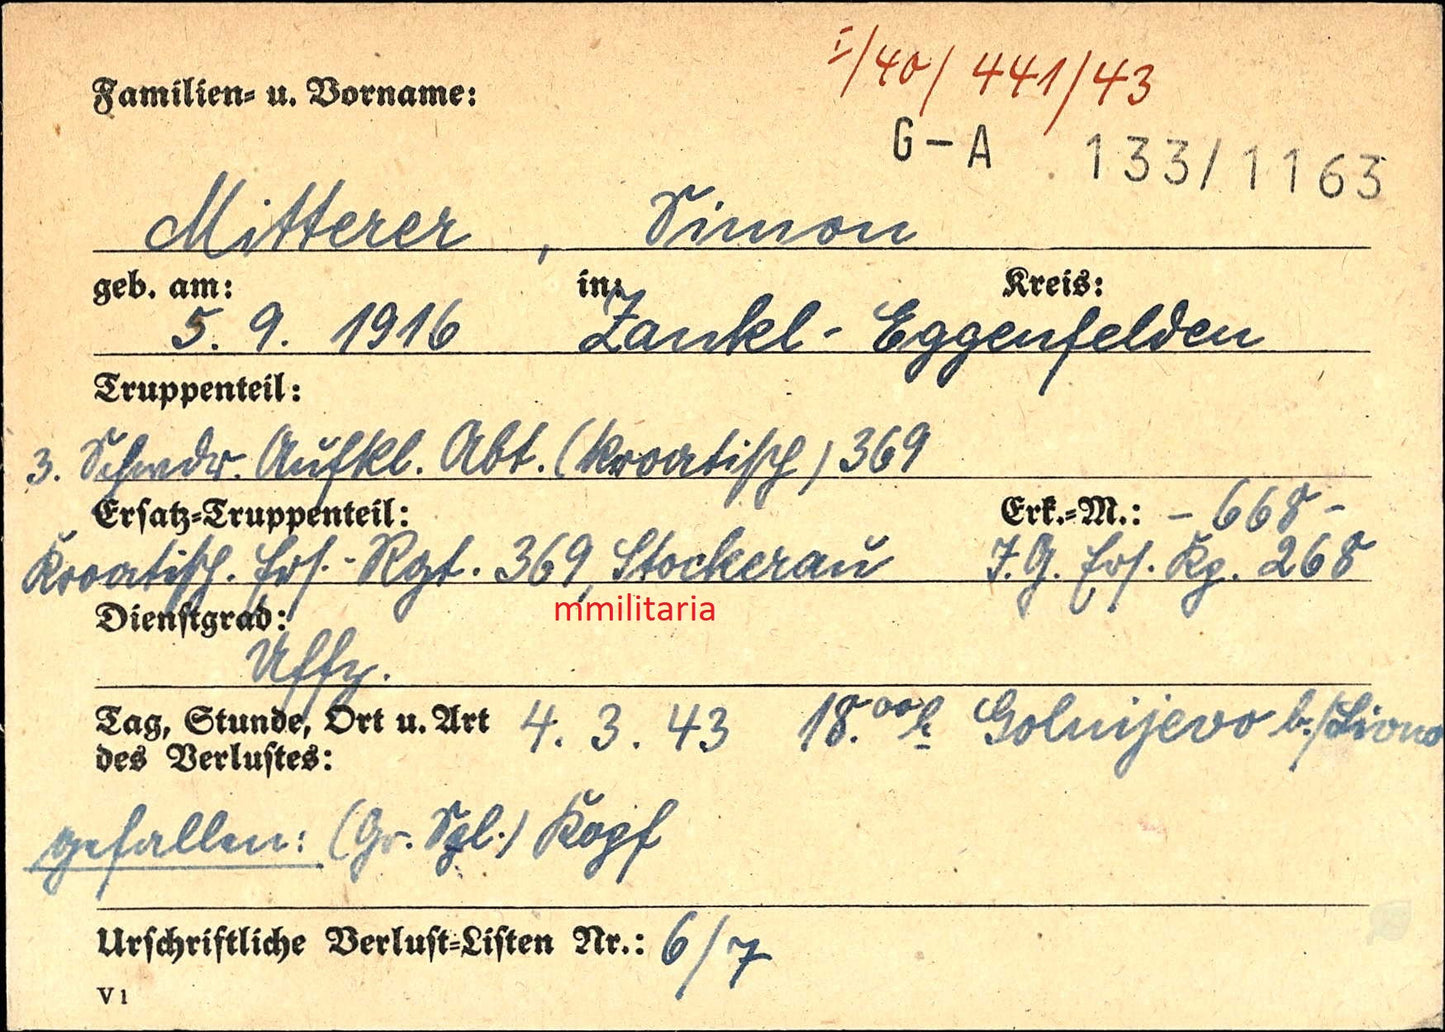 I/40/441/43
Familien- u. Vorname:
G-A 133/1163
Mitterer, Simon
geb. am: in: Kreis:
5. 9. 1916 Zankl- Eggenfelden
Truppenteil:
3. Schwdr. Aufkl. Abt. (kroatisch) 369
Ersatz-Truppenteil: Erk.-M.: - 668 -
Kroatisch. Ers.-Rgt. 369, Stockerau J.G. Ers. Kp. 268
mmilitaria
Dienstgrad:
Uffz.
Tag, Stunde, Ort u. Art 4. 3. 43 18.00 h Golnijevo b./Livno
des Verlustes:
gefallen: (Gr. Spl.) Kopf
Urschriftliche Verlust-Listen Nr.: 6/7
V1